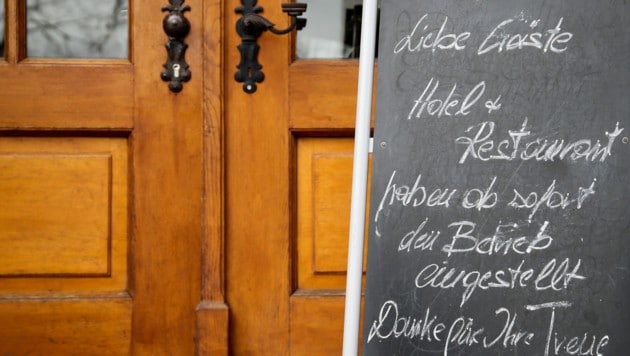 Liebe Gäste
Hotel &
Restaurant
haben ab sofort
den Betrieb
eingestellt
Danke für Ihre Treue